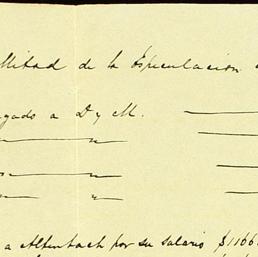 Mitad de la Especulacion
gado a D y M.
" "
" "
" "
a Altenbach por su salario $1166